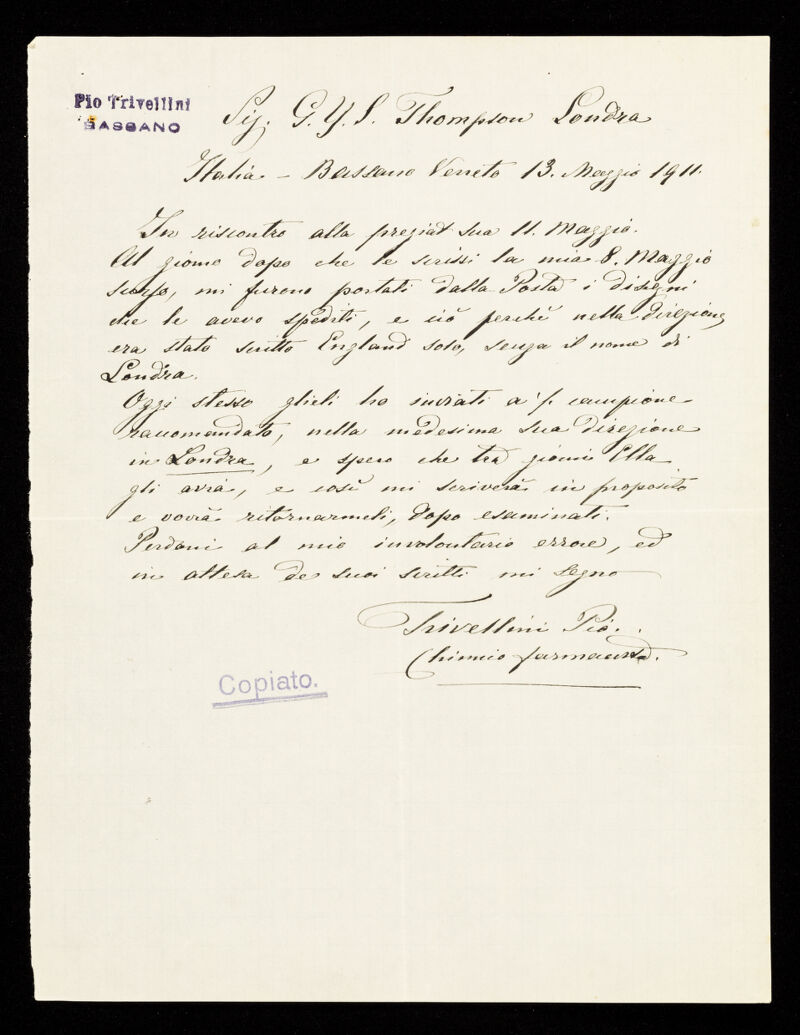 Pio Trivellini
BASSANO
Sig. G. Y. S. Thompson Londra
Italia - Bassano Veneto 13. Maggio 1911.
In riscontro alla pregiat sua 11. Maggio.
Al giorno dopo che le scrissi la mia 8. Maggio
mi furono portati dalla Posta i disegni
che le avevo spediti, e ciò perchè nella direzione
era stato scritto England solo, senza il nome di
Londra.
Oggi stesso glieli ho inviati a 1/2 campione
raccomandato, nella medesima sua direzione
in Londra, e spero che tra giorni Ella
gli avrà, e così mi scriverà in proposito
e vorrà ritornarmeli, dopo esaminati.
Perdoni al mio involontario errore, ed
in attesa de suoi scritti mi segno
Trivellini Pio.
Chimico farmacista.
Copiato.